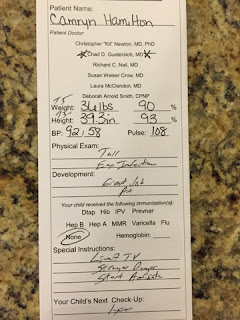 Patient Name:
Camryn Hamilton
Patient Doctor:
Christopher "Kit" Newton, MD, PhD
Chad D. Guetersloh, MD
Richard C. Neil, MD
Susan Weiser Crow, MD
Laura McClendon, MD
Deborah Arnold Smith, CPNP
Weight: 36 lbs 90 %
Height: 39.3in 93 %
BP: 92/58 Pulse: 108
Physical Exam:
Tall
Ear Infection
Development:
Great job
Your child received the following immunization(s):
Dtap Hib IPV Prevnar
Hep B Hep A MMR Varicella Flu
None Hemoglobin:
Special Instructions:
Limit TV
Stranger Danger
Start
Your Child's Next Check-Up:
1 year